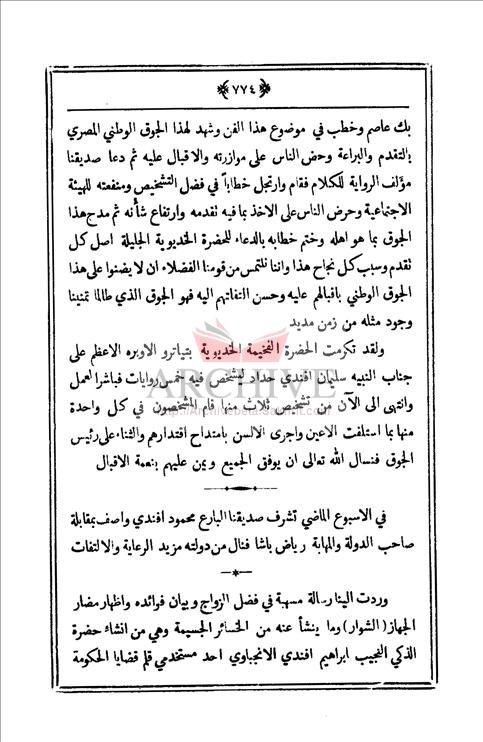 ﴿٧٧٤﴾
بك عاصم وخطب في موضوع هذا الفن وشهد لهذا الجوق الوطني المصري
بالتقدم والبراعة وحض الناس على موازرته والاقبال عليه ثم دعا صديقنا
مؤلف الرواية للكلام فقام وارتجل خطاباً في فضل التشخيص ومنفعته للهيئة
الاجتماعية وحرض الناس على الاخذ بما فيه تقدمه وارتفاع شأنه ثم مدح هذا
الجوق بما هو اهله وختم خطابه بالدعاء للحضرة الخديوية الجليلة اصل كل
تقدم وسبب كل نجاح هذا واننا نلتمس من قومنا الفضلاء ان لا يضنوا على هذا
الجوق الوطني باقبالهم عليه وحسن التفاتهم اليه فهو الجوق الذي طالما تمنينا
وجود مثله من زمن مديد
ولقد تكرمت الحضرة الفخيمة الخديوية بتياترو الاوبره الاعظم على
جناب النبيه سليمان افندي حداد ليشخص فيه خمس روايات فباشر العمل
وانتهى الى الآن من تشخيص ثلاث منها قام المشخصون في كل واحدة
منها بما استلفت الاعين واجرى الالسن بامتداح اقتدارهم والثناء على رئيس
الجوق فنسال الله تعالى ان يوفق الجميع ويمن عليهم بنعمة الاقبال
في الاسبوع الماضي تشرف صديقنا البارع محمود افندي واصف بمقابلة
صاحب الدولة والمهابة رياض باشا فنال من دولته مزيد الرعاية والالتفات
وردت الينا رسالة مسهبة في فضل الزواج وبيان فوائده واظهار مضار
الجهاز (الشوار) وما ينشأ عنه من الخسائر الجسيمة وهي من انشاء حضرة
الذكي النجيب ابراهيم افندي الانجباوي احد مستخدمي قلم قضايا الحكومة
ARCHIVE